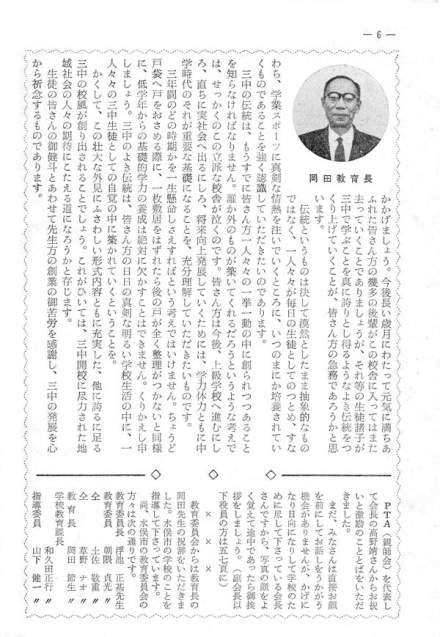 ― 6 ―
岡田教育長
かかげましょう。今後長い歳月にわたって元気に満ちあ
ふれた皆さん方の幾多の後輩がこの校舎に入ってはまた
去っていくことでありましょうが、それ等の生徒諸子が
三中で学ぶことを真に誇りとし得るようなよき伝統をつ
くり上げていくことが、皆さん方の急務であろうかと思
います。
伝統というものは決して漠然としたまま抽象的なもの
ではなく、一人々々が毎日の生徒としてのつとめ、すな
わち、学業スポーツに真剣な情熱を注いでいくところに、いつのまにか培養されてい
くものであることを強く認識していただきたいのであります。
三中の伝統は、もうすでに皆さん方一人々々の一挙一動の中に創られつつあること
を知らなければなりません。誰か外のものが築いてくれるだろうというような考えで
は、せっかくのこの立派な校舎が泣くのです。皆さん方は今後、上級学校へ進むにし
ろ、直ちに実社会へ出るにしろ、将来向上発展していくためには、学力体力ともに中
学時代のそれが重要な基礎になることを、充分理解していただきたいものです。
三年間のどの時期かを一生懸命しさえすればという考えではいけません。ちょうど
戸袋へ戸をおさめる際に、一枚敷居をはずれたら後の戸が全く整理がつかないと同様
に、低学年からの基礎的学力の養成は絶対に欠かすことはできません。くりかえし申
しましょう。三中のよき伝統は、皆さん方の日日の真剣な明るい学校生活の中に、一
人々々の三中生徒としての自覚の中に築かれていくということを。
かくして、この壮大な外見にふさわしい形式内容ともに充実した、他に誇るに足る
三中の校風が創り出されることでしょう。これがひいては、三中開校に尽力された地
域社会の人々の期待にこたえる道になろうかと存じます。
生徒の皆さんの御健斗とあわせて先生方の創業の御苦労を感謝し、三中の発展を心
から祈念するものであります。
PTA(親師会)を代表し
て会長の髙野靖さんからお祝
いと激励のことばをいただ
きました。
まだ、みなさんは直接お顔
を前にしてお話しをうかがう
機会がありませんが、かげに
なり日向になりして学校のた
めに尽して下さっている会長
さんですから、写真の顔をよ
く覚えて途中であったら御挨
拶をしましょう。(副会長以
下役員の方は五七頁に)
× × ×
教育委員会からは教育長の
岡田先生の祝辞をいただきま
した。水俣市の学校のことを
指導して下さっています。
尚、水俣市の教育委員会の
方々は次の通りです。
教育委員長 浮池 正基先生
教育委員 朝隈 貞光〃
仝 土佐 敬重〃
仝 草野 ナオ〃
教育長 岡田 節生〃
学校教育課長
和久田正行〃
指導委員 山下 健一〃